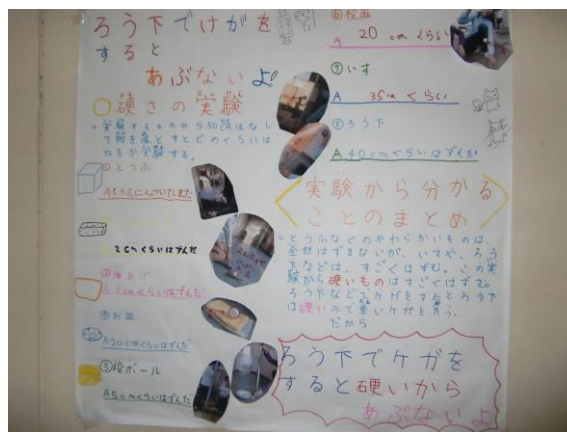 ろう下でけがを
すると
あぶないよ!
硬さの実験
実験するものから50cmはなし
て
なるか実験する。
①とうふ
2cmくらいはずんだ
③油あげ
1cmくらいはずんだ
④お皿
A20cmくらいはずんだ
⑤段ボール
A5cmくらいはずんだ
A 20cmくらい
⑦いす
A 35cmくらい
⑧ろう下
A40cmくらいはずんだ
実験から分かる
ことのまとめ
とうふなどのやわらかいものは、
全然はずまないが、いすや、ろう
下などは、すごくはずむ。この実
験から硬いものはすごくはずむ。
ろう下などでケガをするとろう下
は硬いので重いケガを負う。
だから
ろう下でケガを
すると硬いから
あぶないよ